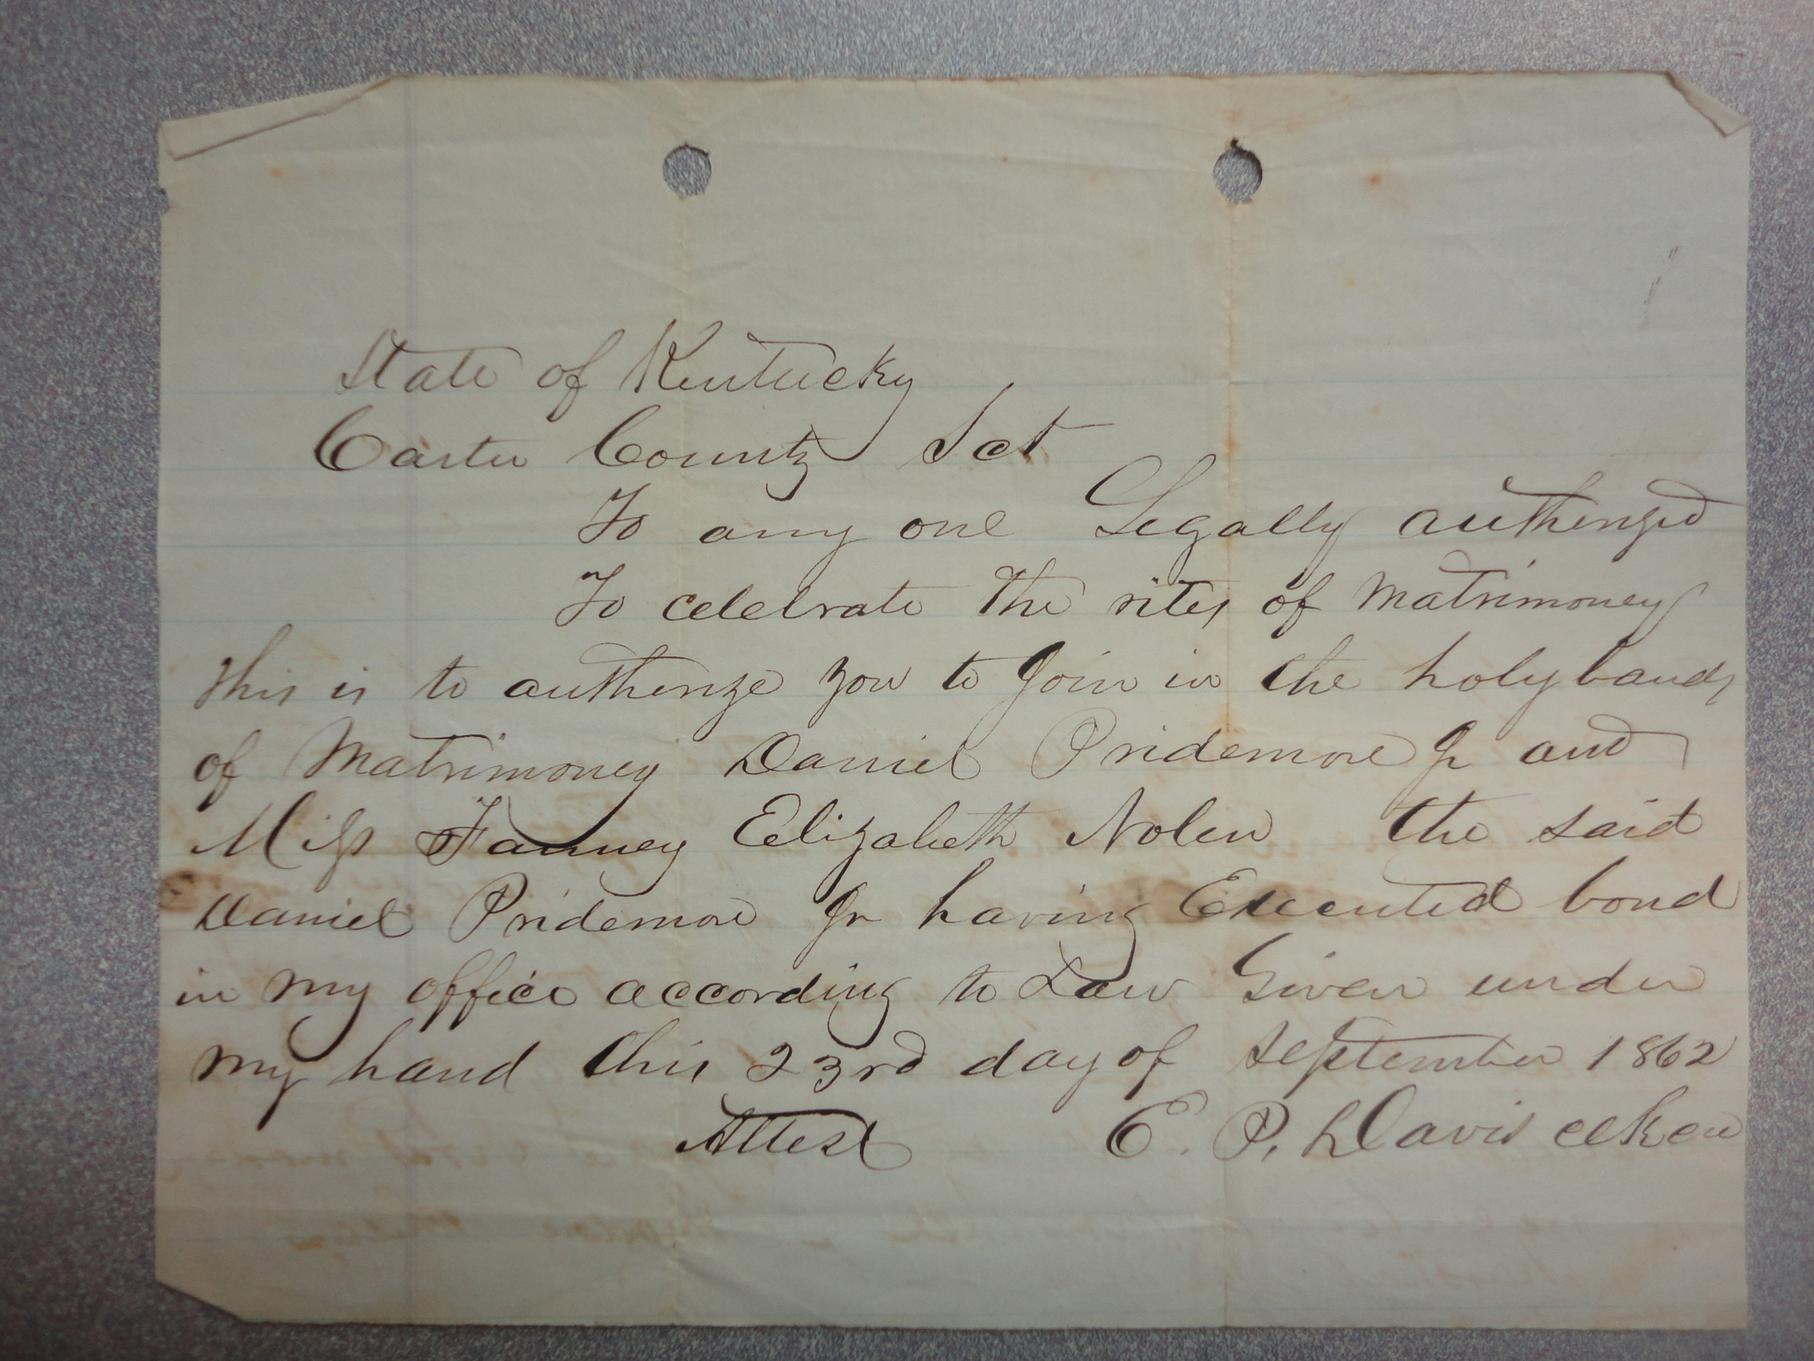 State of Kentucky
Carter County Sct
To any one Legally authorized
To celebrate the rites of Matrimoney
This is to authorize you to Join in the holy bands
of Matrimoney Daniel Pridemore Jr and
Miss Fanney Elizabeth Nolen the said
Daniel Pridemore Jr having Executed bond
in my office according to Law Given under
my hand this 23rd day of September 1862
Attest E. P. Davis